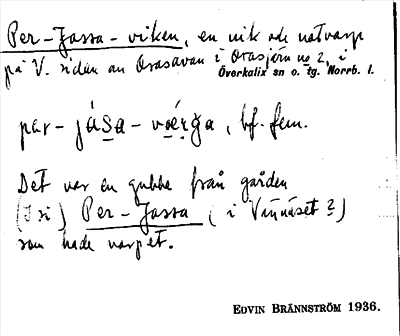 Per-Jassa-viken, en vik och notvarp
på V. sidan av Orasavan i Orasjärn no 2, i
Överkalix sn o. tg. Norrb. l.
pär-jása-, bf. fem.
Det var en gubbe från gården
(Isi) Per-Jassa (i Vännäset?)
som hade varpet.
EDVIN BRÄNNSTRÖM 1936.